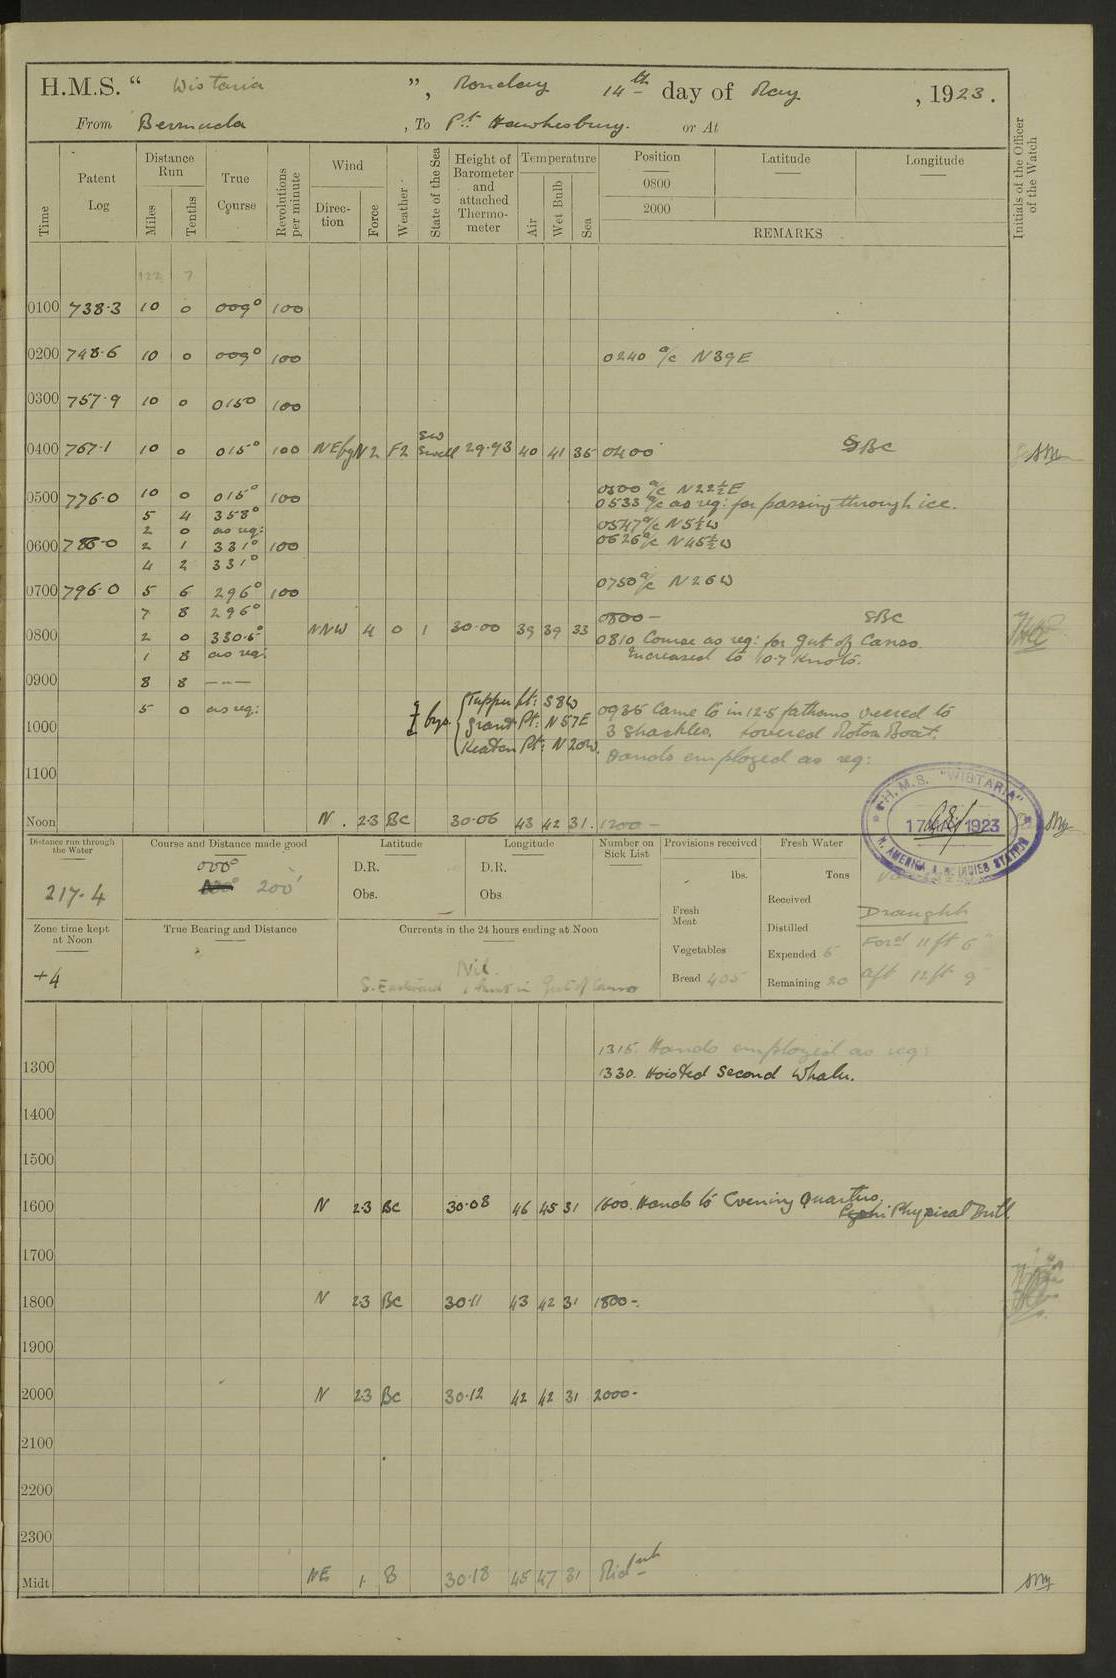 H.M.S. “ Wistaria ”, Monday 14th day of May, 1923.
From Bermuda, To Pt. Hawkesbury. or At
Time
Patent Log
Distance Run
Miles
Tenths
True Course
Revolutions per minute
Wind
Direction
Force
Weather
State of the Sea
Height of Barometer and attached Thermometer
Temperature
Air
Wet Bulb
Sea
Position Latitude Longitude
0800
2000
REMARKS
Initials of the Officer of the Watch
122 7
0100 738.3 10 0 009° 100
0200 748.6 10 0 009° 100 0240 a/c N39E
0300 757.9 10 0 015° 100
0400 767.1 10 0 015° 100 NEbyN 2 F2 SW Swell 29.93 40 41 35 0400 SBC
0500 776.0 10 0 015° 100 0500 a/c N22½E
0533 a/c as req: for passing through ice.
5 4 358° 0547 a/c N5½W
2 0 as req:
0600 786.0 2 1 331° 100 0626 a/c N45½W
4 2 331°
0700 796.0 5 6 296° 100 0750 a/c N26W
7 8 296° 0800 – SBC
0800 2 0 330.5° NNW 4 0 1 30.00 39 39 33 0810 Course as req: for Gut of Canso.
1 8 as req: Increased to 10.7 Knots.
0900 8 8 ---
5 0 as req: Tupper Pt: S8W 0935 Came to in 12.5 fathoms veered to
1000 bgs. Grant Pt: N57E 3 shackles. Lowered Motor Boat.
Keaton Pt: N20W. Hands employed as req:
1100
Noon N. 2.3 BC 30.06 43 42 31. 1200 –
H.M.S. "WISTARIA"
17 1923
N. AMERICA & W. INDIES STATION
Distance run through the Water
217.4
Course and Distance made good
000°
200'
Latitude
D.R.
Obs.
Longitude
D.R.
Obs
Number on Sick List
Provisions received
lbs.
Fresh Meat
Vegetables
Bread 405
Fresh Water
Tons
Received
Distilled
Expended 5
Remaining 20
Draught
For'd 11 ft 6"
Aft 12 ft 9"
Zone time kept at Noon
+4
True Bearing and Distance
Currents in the 24 hours ending at Noon
Nil.
S. Eastward in Gut of Canso
1315. Hands employed as req:
1300 1330. Hoisted Second Whaler.
1400
1500
1600 N 2.3 BC 30.08 46 45 31 1600. Hands to Evening Quarters.
Physical Drill
1700
1800 N 2.3 BC 30.11 43 42 31 1800 –.
1900
2000 N 2.3 BC 30.12 42 42 31 2000 –
2100
2200
2300
Midt NE 1. B 30.18 45 47 31 Midt